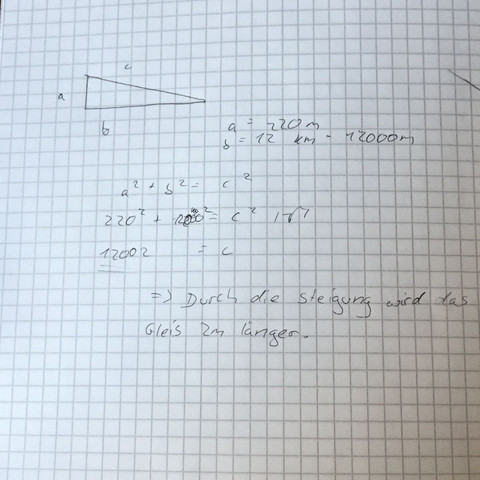 c
a
b
a = 220m
b = 12 km = 12000m
a² + b² = c²
220² + 12000² = c² |√
12002 = c
=> Durch die Steigung wird das
Gleis 2m länger.